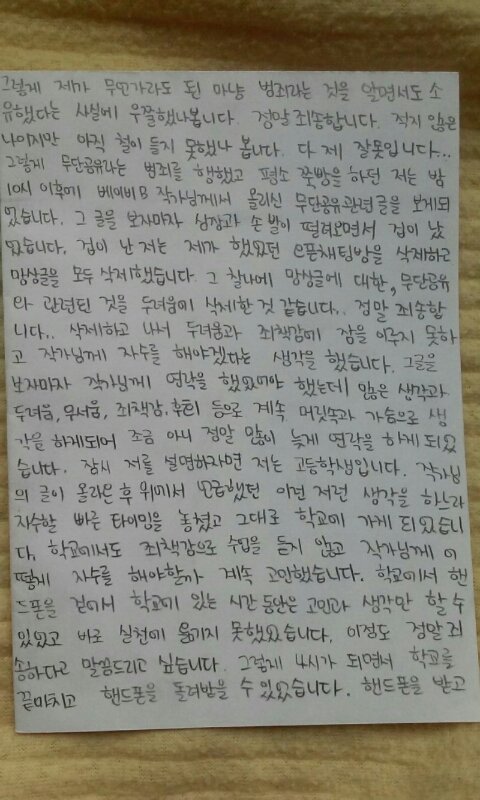 그렇게 제가 무언가라도 된 마냥 범죄라는 것을 알면서도 소
유했다는 사실에 우쭐했나봅니다. 정말 죄송합니다. 적지 않은
나이지만 아직 철이 들지 못했나 봅니다. 다 제 잘못입니다...
그렇게 무단공유라는 범죄를 행했고 평소 쭞방을 하던 저는 밤
10시 이후에 베이비B 작가님께서 올리신 무단공유관련글을 보게되
었습니다. 그 글을 보자마자 심장과 손발이 떨려오면서 겁이 났
었습니다. 겁이 난 저는 제가 했었던 오픈채팅방을 삭제하고
망상글을 모두 삭제했습니다. 그 찰나에 망상글에 대한, 무단공유
와 관련된 것을 두려움에 삭제한 것 같습니다.. 정말 죄송합
니다.. 삭제하고 나서 두려움과 죄책감에 잠을 이루지 못하
고 작가님께 자수를 해야겠다는 생각을 했습니다. 그글을
보자마자 작가님께 연락을 했었어야 했는데 않은 생각과
두려움, 무서움, 죄책감, 후회 등으로 계속 머릿속과 가슴으로 생
각을 하게되어 조금 아니 정말 많이 늦게 연락을 하게 되었
습니다. 잠시 저를 설명하자면 저는 고등학생입니다. 작가님
의 글이 올라온 후 위에서 언급했던 이런 저런 생각을 하느라
자수할 빠른 타이밍을 놓쳤고 그대로 학교에 가게 되었습니
다. 학교에서도 죄책감으로 수업을 듣지 않고 작가님께 어
떻게 자수를 해야할까 계속 고민했습니다. 학교에서 핸
드폰을 걷어서 학교에 있는 시간 동안은 고민과 생각만 할 수
있었고 바로 실천에 옮기지 못했었습니다. 이점도 정말 죄
송하다고 말씀드리고 싶습니다. 그렇게 4시가 되면서 학교를
끝마치고 핸드폰을 돌려받을 수 있었습니다. 핸드폰을 받고